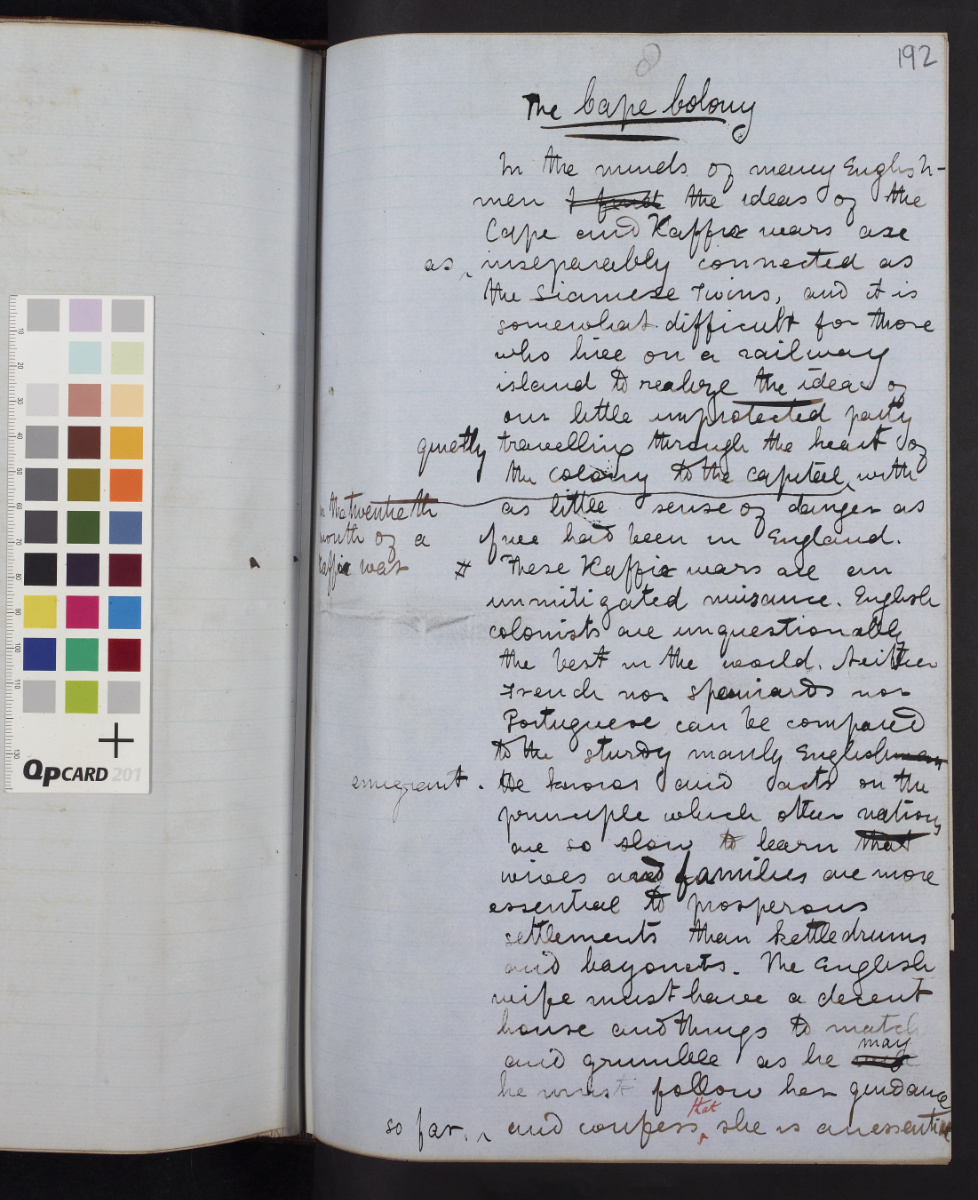 192
8
The Cape Colony
In the minds of many English-
men I find the ideas of the
Cape and Kaffir wars are
as inseparably connected as
the Siamese Twins, and it is
somewhat difficult for those
who live on a railway
island to realize the idea of
our little unprotected party
quietly travelling through the heart of
the colony to the capital, with
in the twentieth
month of a
Kaffir war
as little sense of danger as
if we had been in England.
# These Kaffir wars are an
unmitigated nuisance. English
colonists are unquestionably
the best in the world. Neither
French nor Spaniards nor
Portuguese can be compared
to the sturdy manly Englishman
emigrant. He knows and acts on the
principle which other nations
are so slow to learn that
wives and families are more
essential to prosperous
settlements than kettledrums
and bayonets. The English
wife must have a decent
house and things to match
and grumble as he may
he must follow her guidance
so far and confess that she is an essential
10
20
30
40
50
60
70
80
90
100
110
130
QPCARD 201